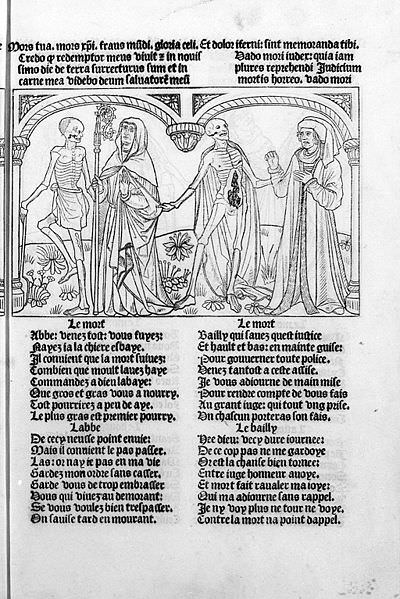 Mors tua. mors xpi. fraus mūdi. gloria celi. Et dolor iferni: sint memoranda tibi.
Credo q̄ redemptor meus viuit ⁊ in nouis
simo die de terra surrecturus sum et in
carne mea videbo deum saluatorē meū
Vado mori iudex: quia iam
plures reprehendi Judicium
mortis horreo. vado mori
Le mort
Abbe: venez tost: vous fuyez:
Nayez ia la chiere esbaye.
Il conuient que la mort suiuez:
Combien que moult lauez haye
Commandez a dieu labaye:
Que gros et gras vous a nourry.
Tost pourrirez a peu de aye.
Le plus gras est premier pourry.
Labbe
De cecy neusse point enuie:
Mais il conuient le pas passer.
Las: or nay ie pas en ma vie
Garde mon ordre sans casser.
Garde vous de trop embrasser
Vous qui viuez au demorant:
Se vous voulez bien trespasser.
On sauise tard en mourant.
Le mort
Bailly qui sauez quest iustice
Et hault et bas: en mainte guise:
Pour gouuerner toute police.
Venez tantost a ceste assise.
Je vous adiourne de main mise
Pour rendre compte de vous fais
Au grant iuge: qui tout vng prise.
Un chascun portera son fais.
Le bailly
Hee dieu: vecy dure iournee:
De ce cop pas ne me gardoye
Or est la chanse bien tornee:
Entre iuge honneur auoye.
Et mort fait raualer ma ioye:
Qui ma adiourne sans rappel.
Je ny voy plus ne tour ne voye.
Contre la mort na point dappel.